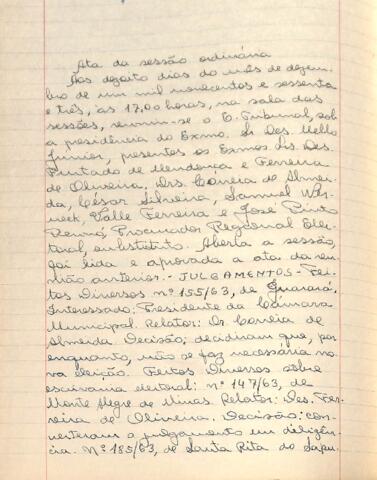 Ata da sessão ordinária
Aos dezoito dias do mês de dezem-
bro de um mil novecentos e sessenta
e três, às 17,00 horas, na sala das
sessões, reuniu-se o E. Tribunal, sob
a presidência do Exmo. Sr. Des. Mello
Junior, presentes os Exmos. Srs. Des.
Furtado de Mendonça e Ferreira
de Oliveira, Drs. Corrêia de Almei-
da, César Silveira, Samuel Wer-
neck, Valle Ferreira e José Pinto
Rennó, Procurador Regional Elei-
toral, substituto. Aberta a sessão,
foi lida e aprovada a ata da reu-
nião anterior. - JULGAMENTOS - Fei-
tos Diversos nº 155/63, de Guarará.
Interessado: Presidente da Câmara
Municipal. Relator: Dr. Correia de
Almeida. Decisão: decidiram que, por
enquanto, não se faz necessária no-
va eleição. Feitos Diversos sobre
escrivania eleitoral: nº 147/63, de
Monte Alegre de Minas. Relator: Des. Fer-
reira de Oliveira. Decisão: con-
verteram o julgamento em diligên-
cia. Nº 185/63, de Santa Rita do Sapu-